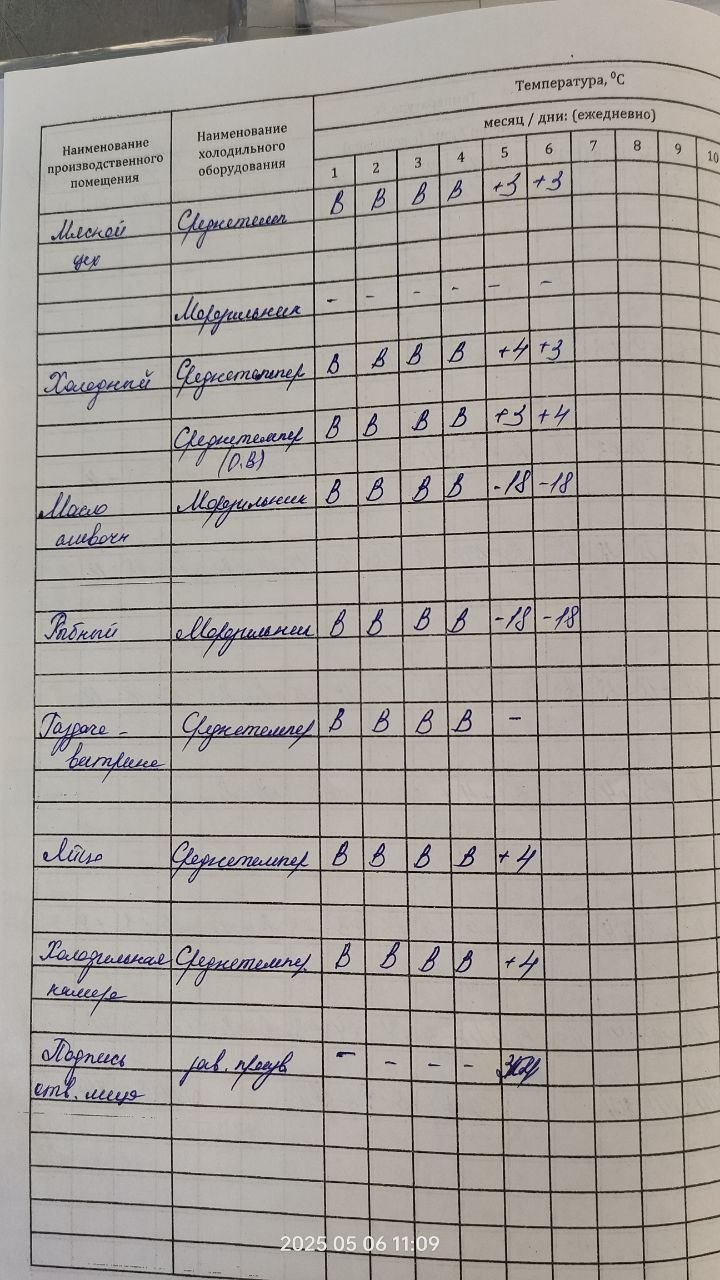 Температура, ⁰С
месяц / дни: (ежедневно)
Наименование производственного помещения
Наименование холодильного оборудования
1 2 3 4 5 6 7 8 9 10
Мясной цех Среднетемп В В В В +3 +3
Морозильник - - - - - -
Холодный Среднетемпер В В В В +4 +3
Среднетемпер (О.В) В В В В +3 +4
Масло сливочн Морозильник В В В В -18 -18
Рыбный Морозильник В В В В -18 -18
Раздача - витрина Среднетемпер В В В В -
Яйцо Среднетемпер В В В В +4
Холодильная камера Среднетемпер В В В В +4
Подпись отв. лица зав. произв - - - -
2025 05 06 11:09